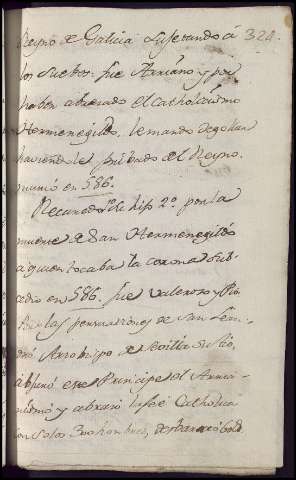 Reyno de Galicia superando á 324.
los Suebos. fue Arriano y por
haber abrazado el catholicismo
Hermenegildo. le mando degollar
haviendole privado del Reyno.
murió en 586.
Recaredo 1º de hijo 2º por la
muerte de San Hermenegildo
a quien tocaba la corona su
cedio en 586. fue valeroso y Pio
Por las persuasiones de San Lean
dro Arzobispo de Sevilla su tio,
abjuró este Principe el Arria
nismo y abrazó la fé Catholica
con solos 300 hombres, desbarató